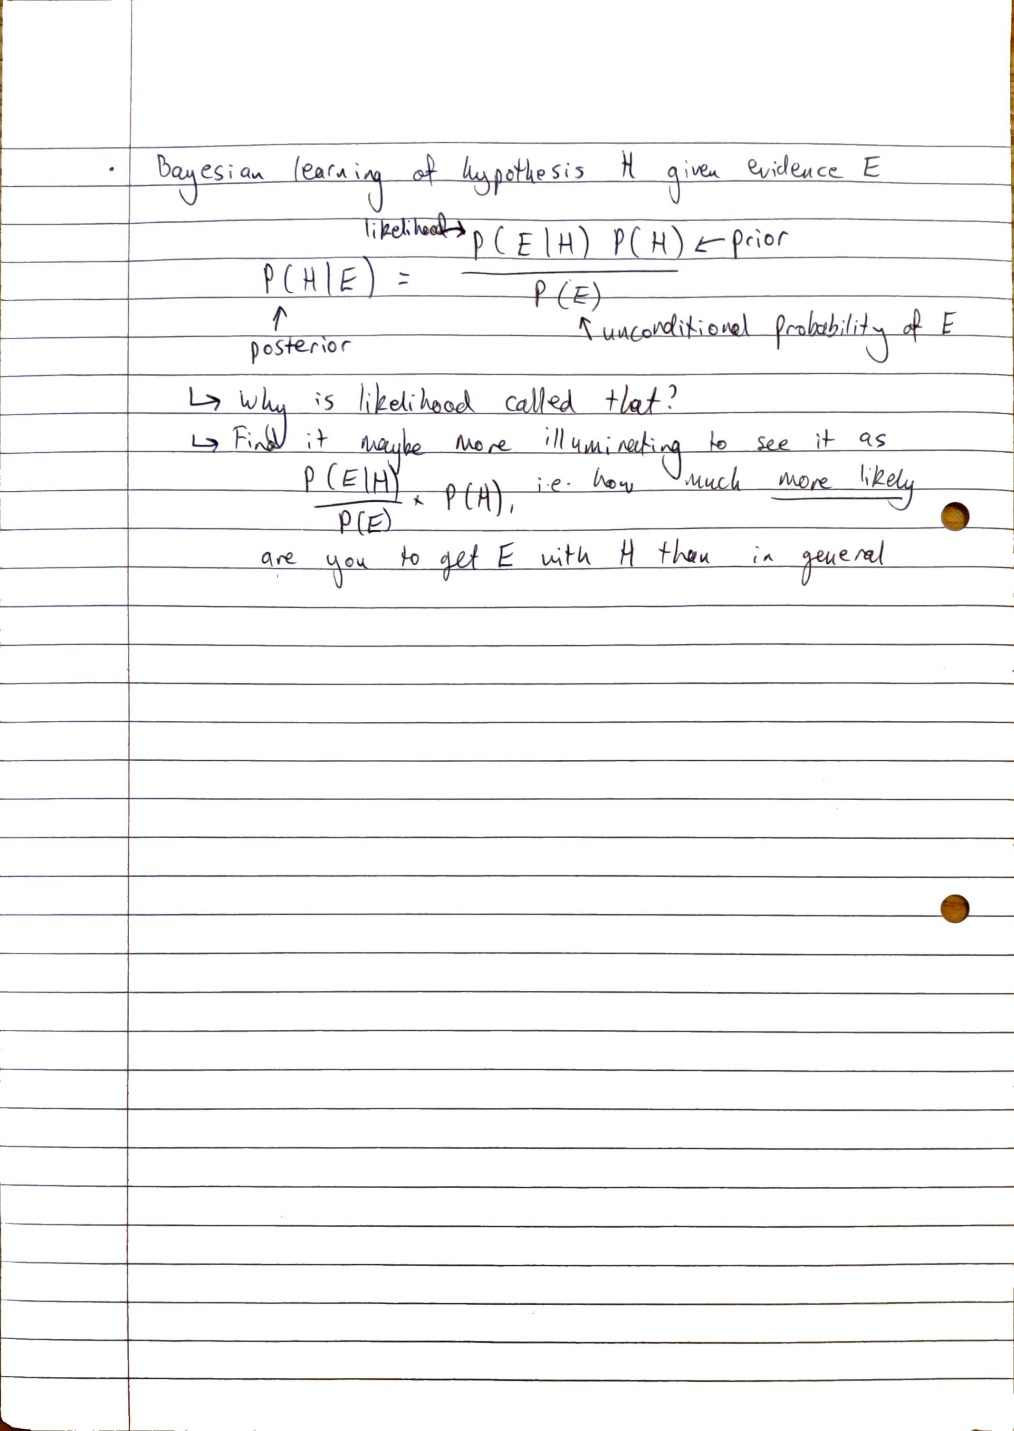 · Bayesian learning of hypothesis H given evidence E
likelihood → P(E|H) P(H) ← prior
P(H|E) =
P(E)
↑ ↖ unconditional probability of E
posterior
↳ Why is likelihood called that?
↳ Find it maybe more illuminating to see it as
P(E|H) / P(E) × P(H), i.e. how much more likely
are you to get E with H than in general